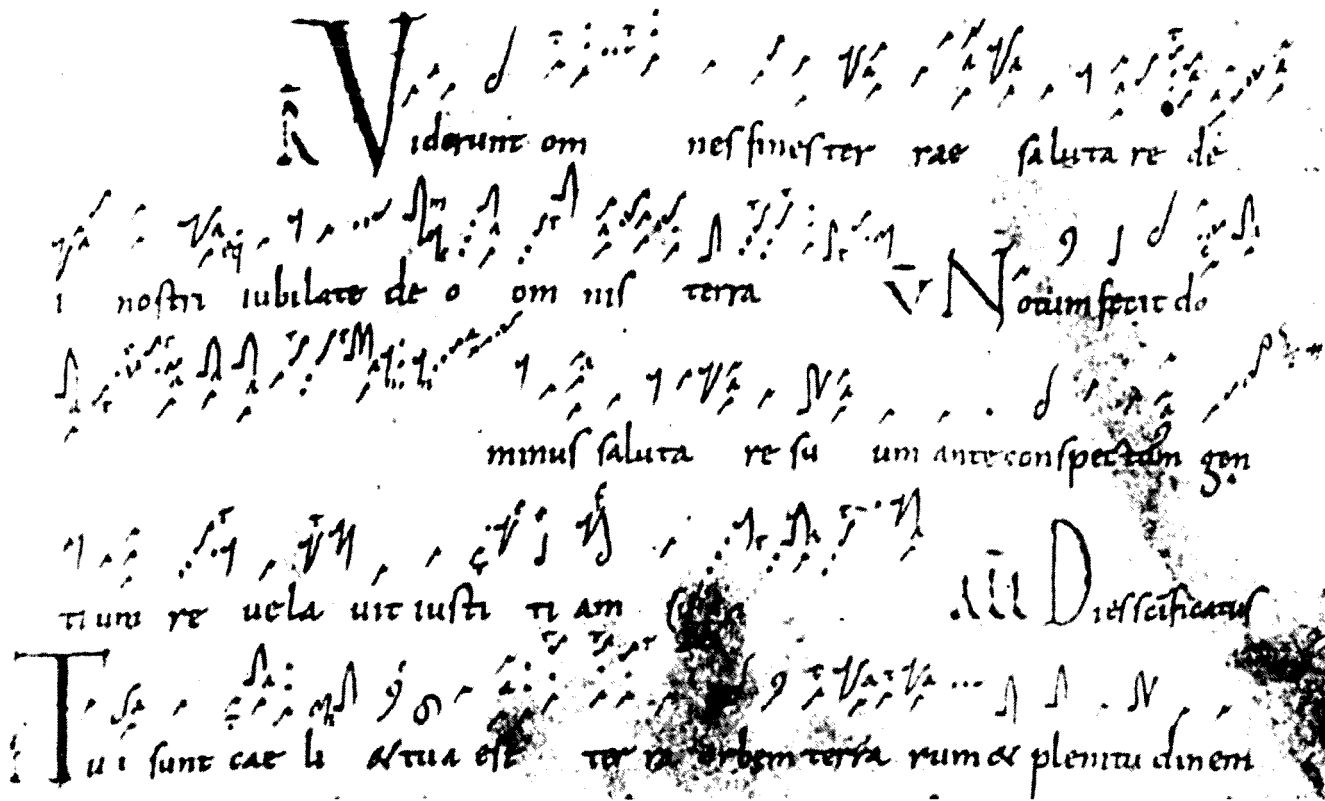 R̄ Viderunt om nes fines ter rae saluta re de
i nostri iubilate de o om nis terra V̄ Notum fecit do
minus saluta re su um ante conspectum gen
tium re uela uit iusti ti am
All̄ Dies scīficatus
Tui sunt cae li & tua est ter ra orbem terra rum & plenitu dinem